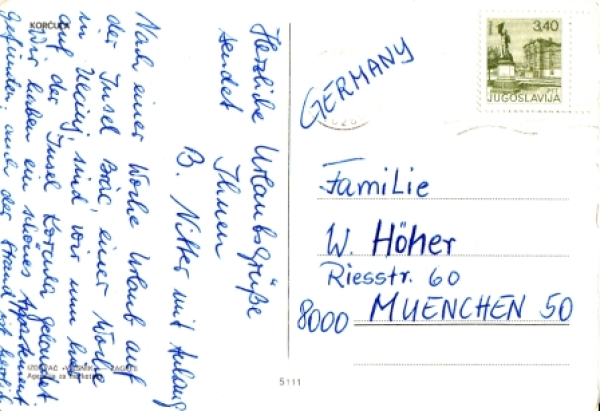 KORČULA
Nach einer Woche Urlaub auf
der Insel Brač, einer Woche
in Ulcinj, sind wir nun hier
auf der Insel Korcula gelandet.
Wir haben ein schönes Appartement
gefunden, auch der Strand ist herrlich
Herzliche Urlaubsgrüße
sendet Ihnen
B. Nitter mit Anhang
GERMANY
3,40
JUGOSLAVIJA
Familie
W. Höher
Riesstr. 60
8000 MUENCHEN 50
5111